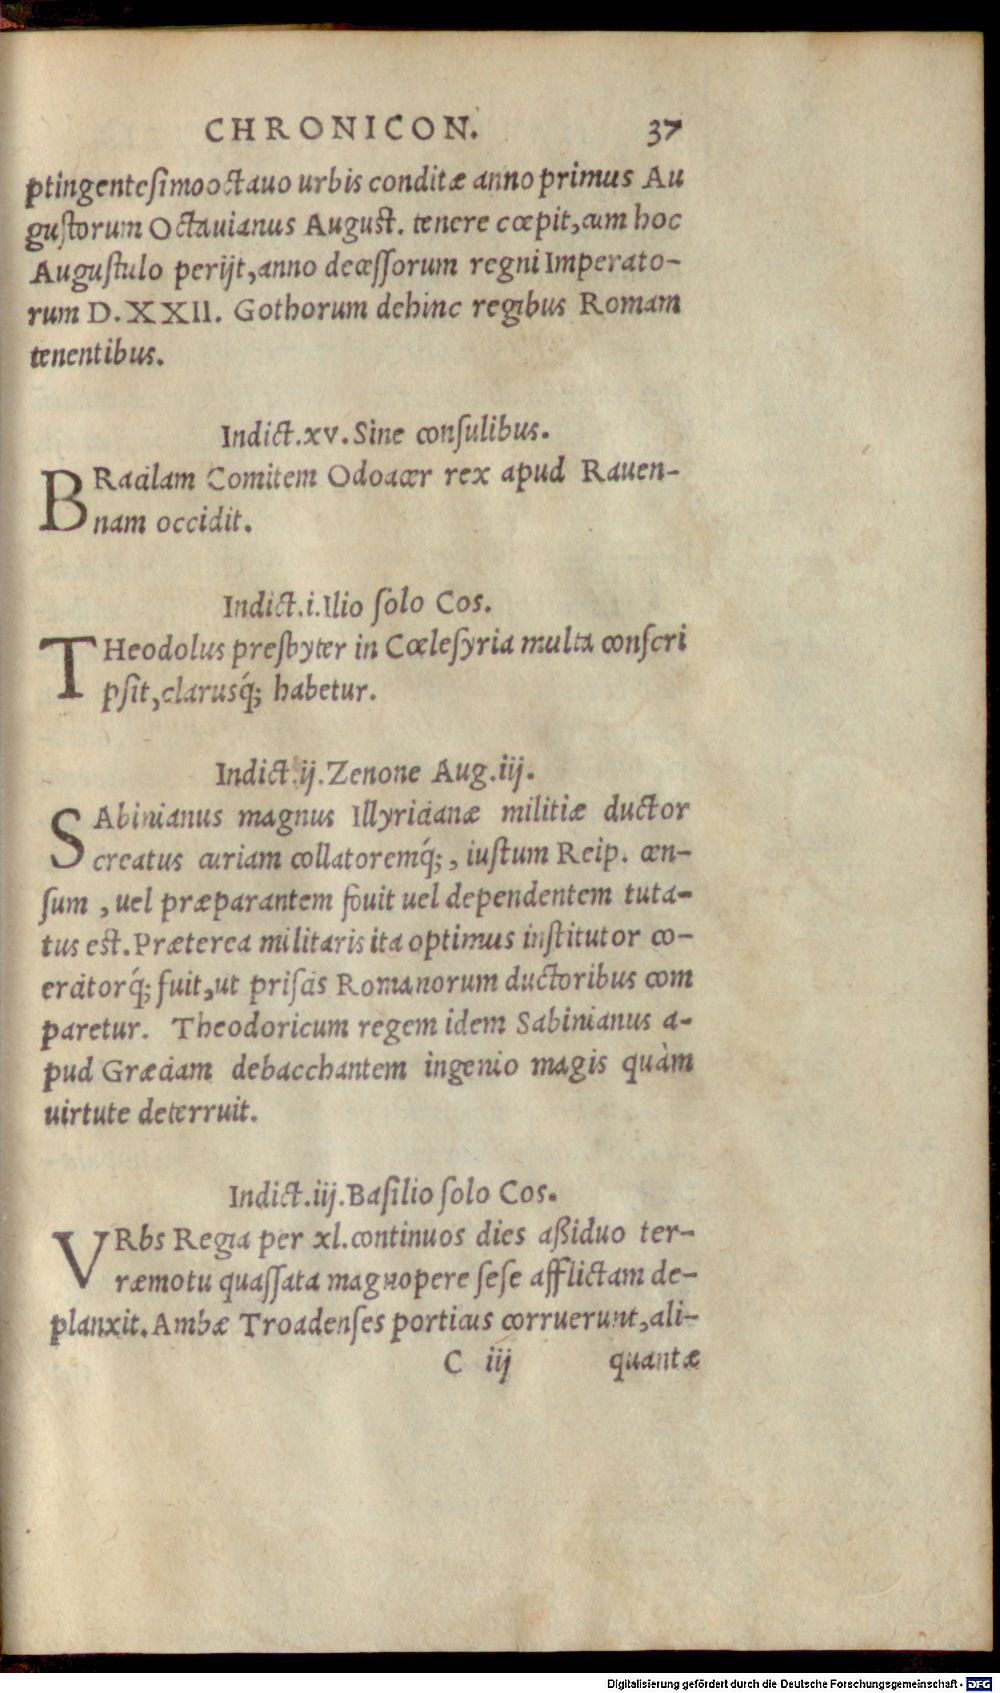 CHRONICON. 37
ptingentesimooctauo urbis conditæ anno primus Au
gustorum Octauianus August. tenere cœpit, cum hoc
Augustulo perijt, anno decessorum regni Imperato-
rum D.XXII. Gothorum dehinc regibus Romam
tenentibus.
Indict.xv. Sine consulibus.
BRacilam Comitem Odoacer rex apud Rauen-
nam occidit.
Indict.i. Ilio solo Cos.
THeodolus presbyter in Cœlesyria multa conscri
psit, clarusq́; habetur.
Indict.ij. Zenone Aug.iij.
SAbinianus magnus Illyricianæ militiæ ductor
creatus curiam collatoremq́;, iustum Reip. cen-
sum, uel præparantem fouit uel dependentem tuta-
tus est. Præterea militaris ita optimus institutor co-
ercitorq́; fuit, ut priscis Romanorum ductoribus com
paretur. Theodoricum regem idem Sabinianus a-
pud Græciam debacchantem ingenio magis quàm
uirtute deterruit.
Indict.iij. Basilio solo Cos.
VRbs Regia per xl. continuos dies aßiduo ter-
ræmotu quassata magnopere sese afflictam de-
planxit. Ambæ Troadenses porticus corruerunt, ali-
C iij quantæ
Digitalisierung gefördert durch die Deutsche Forschungsgemeinschaft - DFG